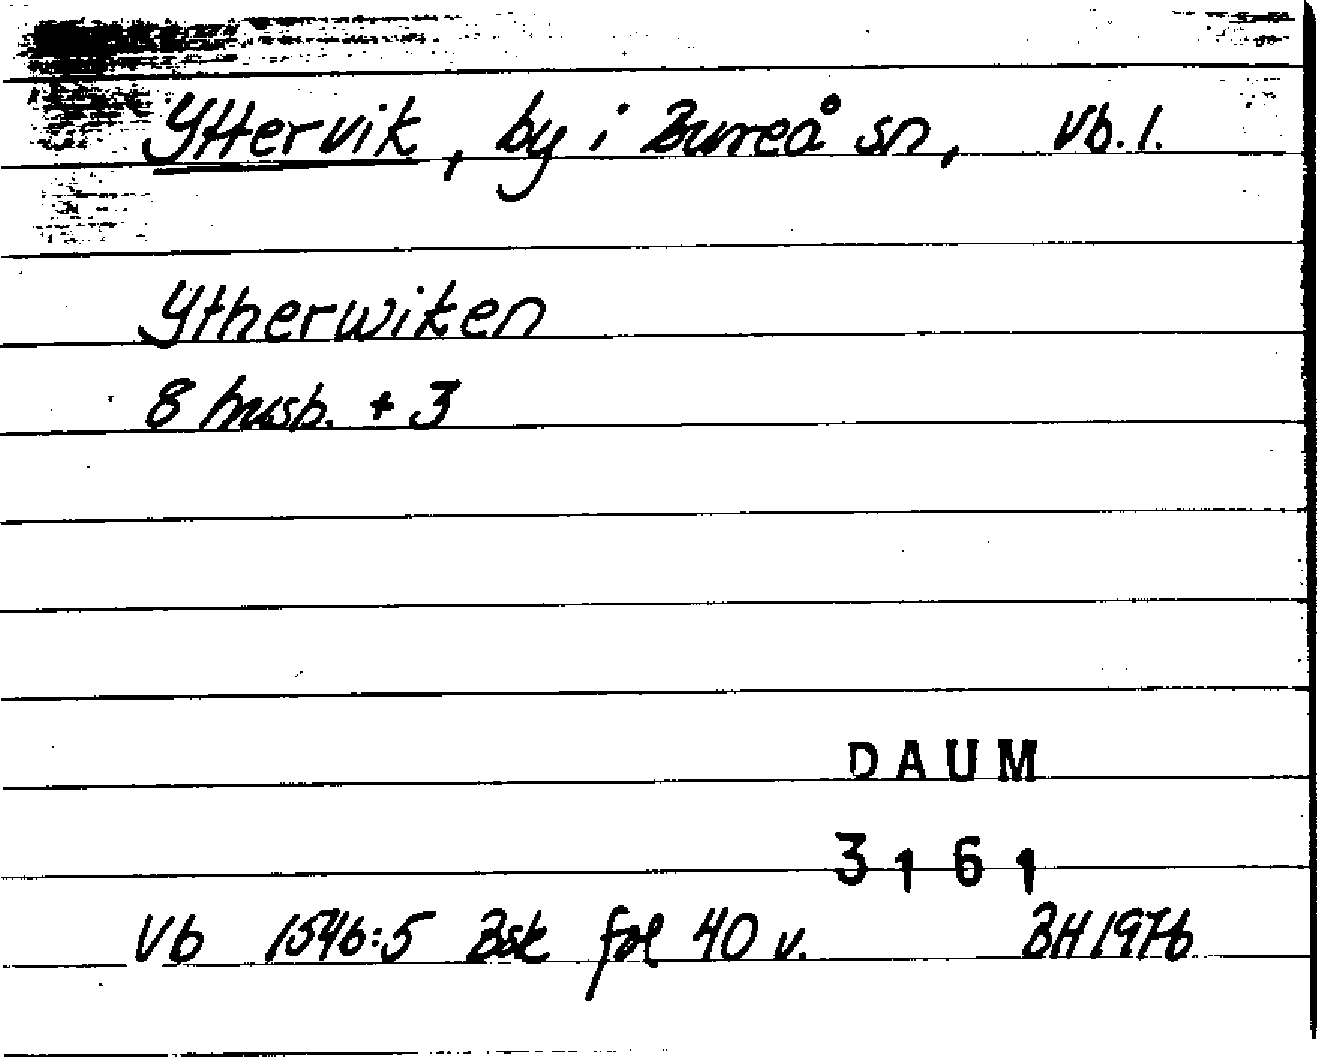 Yttervik, by i Bureå sn, Vb. l.
Ytherwiken
8 husb. + 3
DAUM
3161
Vb 1546:5 Bsk fol 40 v. BH 1976